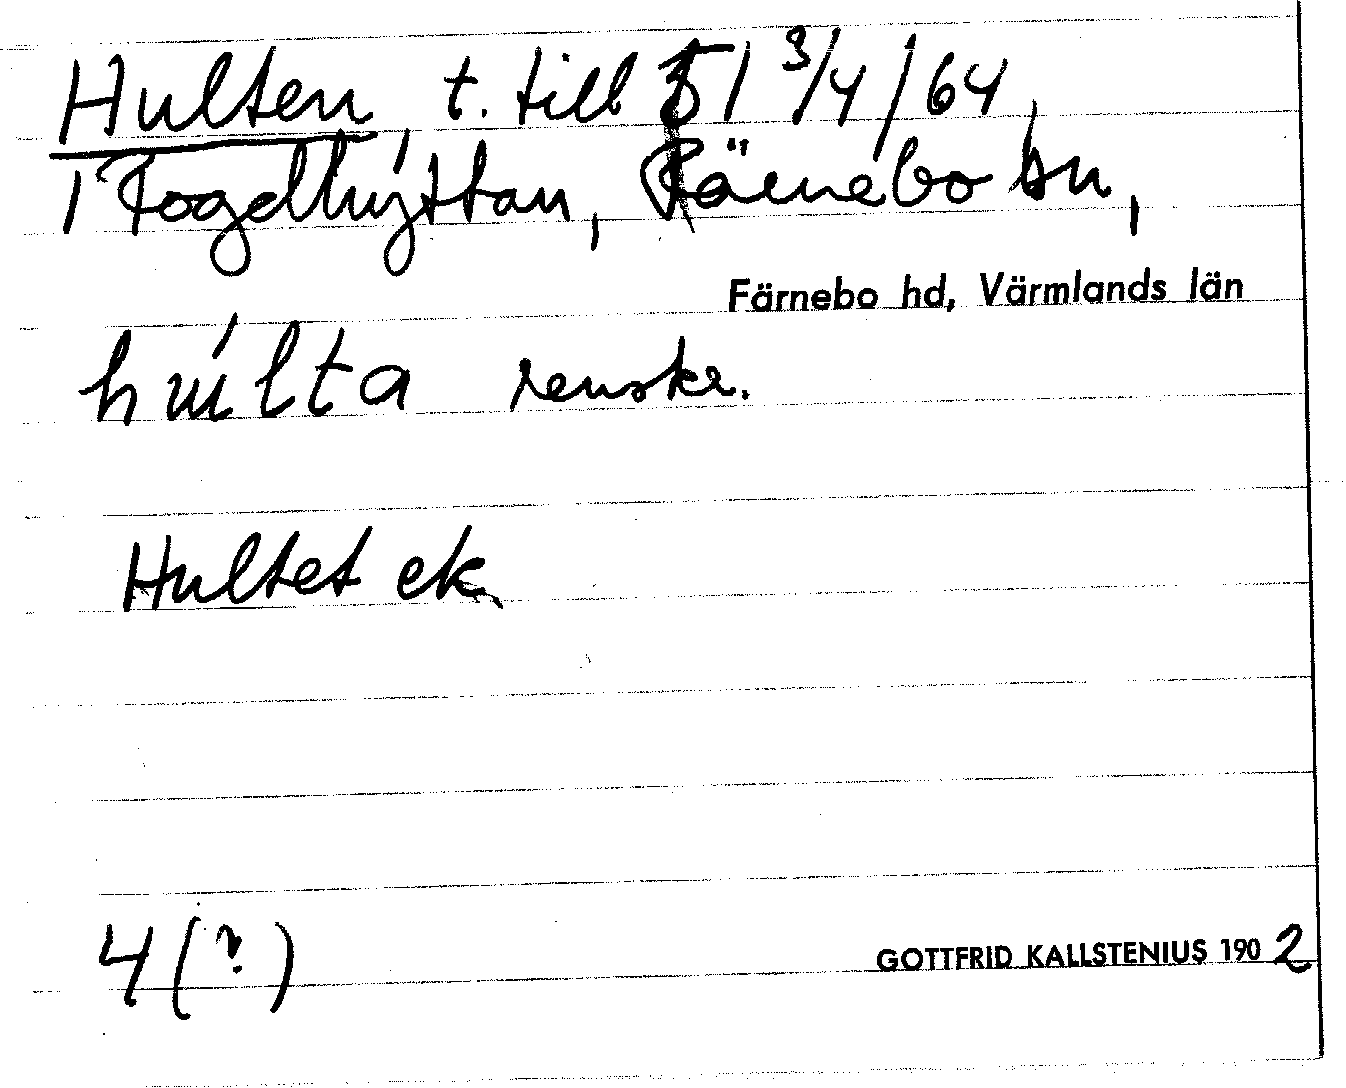 Hulten, t. till 51 3/4/64,
1 Fogelhyttan, Färnebo sn,
Färnebo hd, Värmlands län
hulta renskr.
Hultet ek.
4 (?)
GOTTFRID KALLSTENIUS 1902